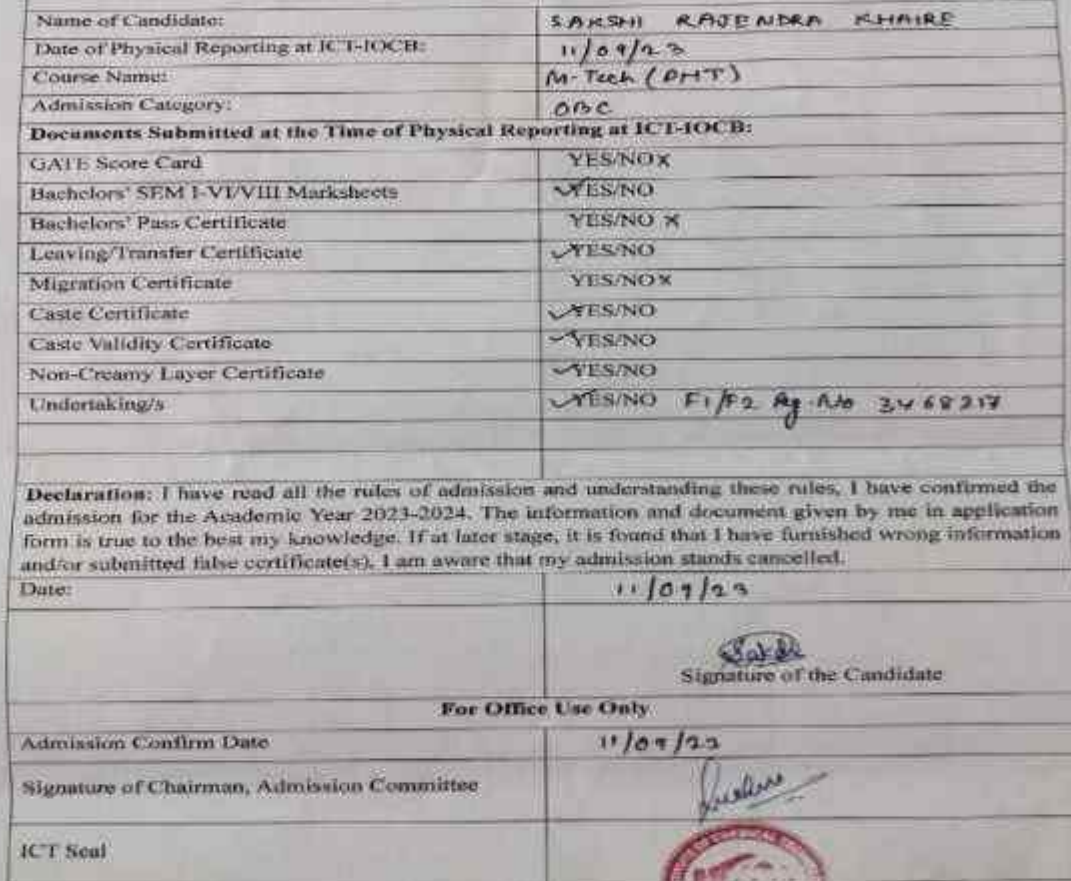 Name of Candidate: SAKSHI RAJENDRA KHAIRE
Date of Physical Reporting at ICT-IOCB: 11/09/23
Course Name: M-Tech (PHT)
Admission Category: OBC
Documents Submitted at the Time of Physical Reporting at ICT-IOCB:
GATE Score Card YES/NO X
Bachelors' SEM I-VI/VIII Marksheets ✓YES/NO
Bachelors' Pass Certificate YES/NO X
Leaving/Transfer Certificate ✓YES/NO
Migration Certificate YES/NO X
Caste Certificate ✓YES/NO
Caste Validity Certificate ✓YES/NO
Non-Creamy Layer Certificate ✓YES/NO
Undertaking/s ✓YES/NO F1/F2 Reg. No 3468217
Declaration: I have read all the rules of admission and understanding these rules, I have confirmed the
admission for the Academic Year 2023-2024. The information and document given by me in application
form is true to the best my knowledge. If at later stage, it is found that I have furnished wrong information
and/or submitted false certificate(s), I am aware that my admission stands cancelled.
Date: 11/09/23
Signature of the Candidate
For Office Use Only
Admission Confirm Date 11/09/23
Signature of Chairman, Admission Committee
ICT Seal